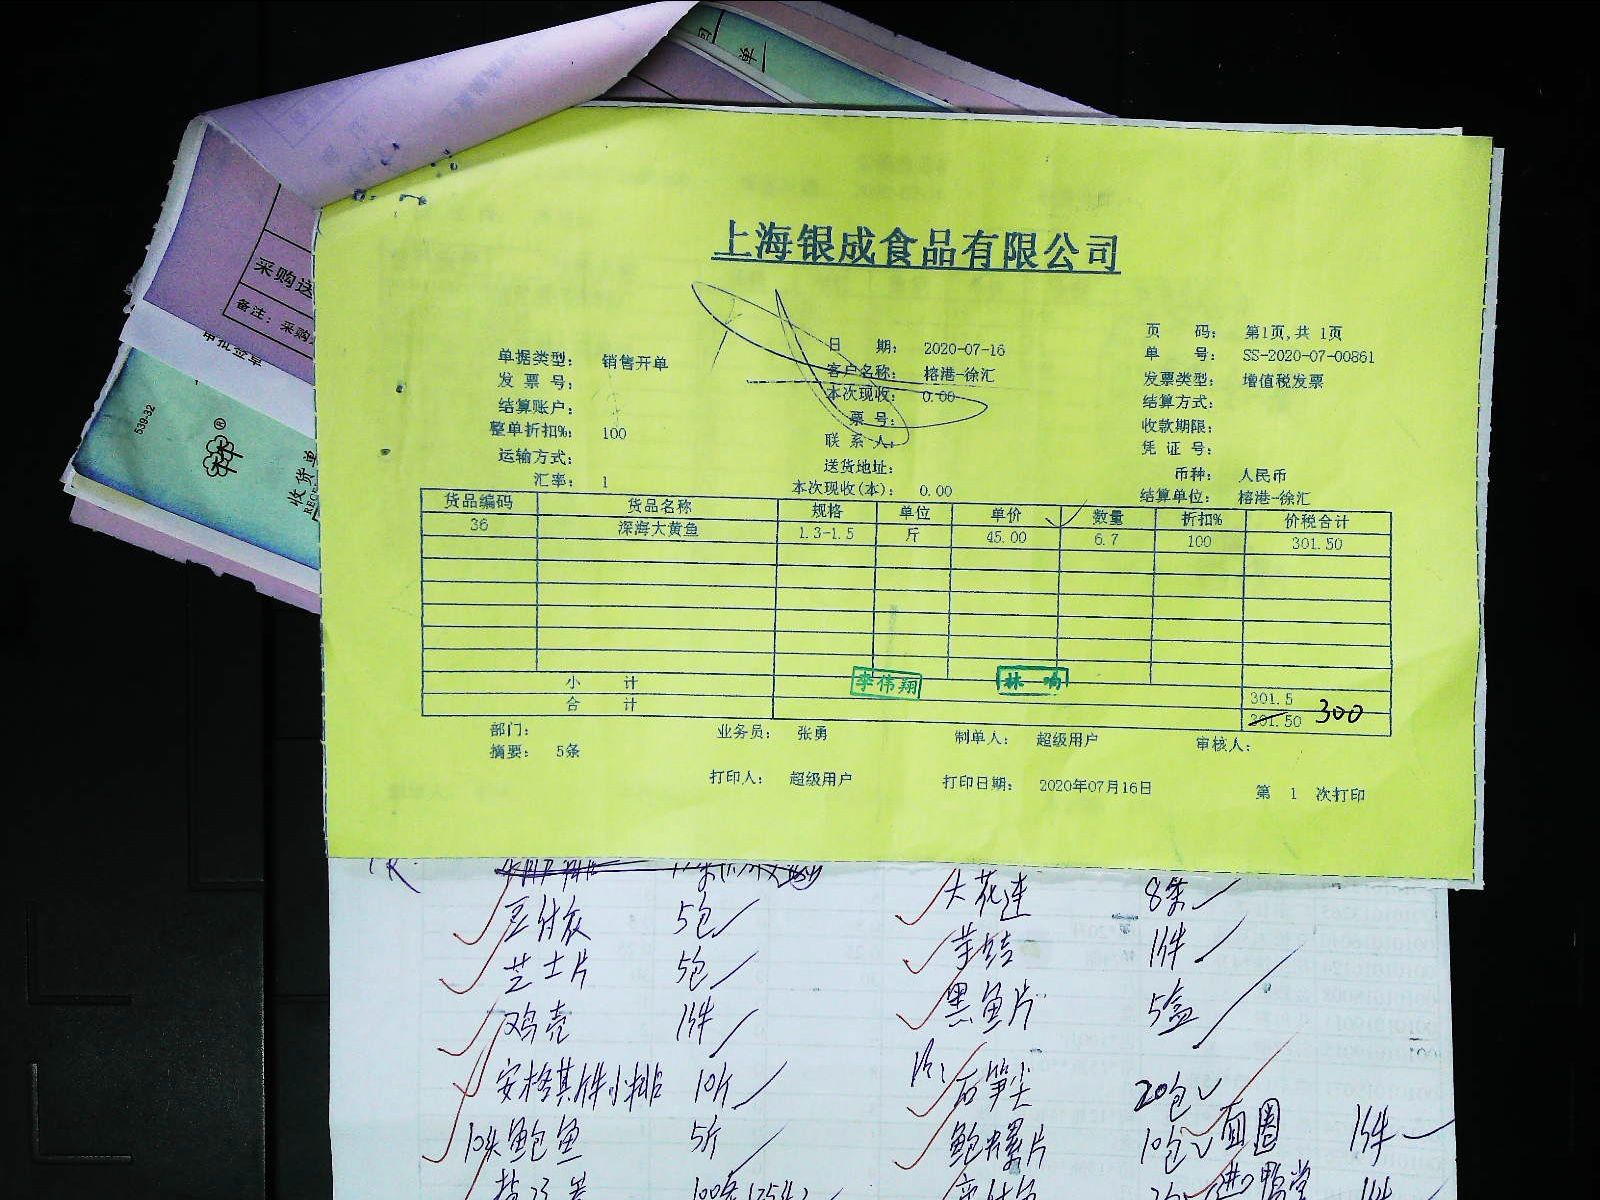 单
采购送
备注：采购
审批签章
539-32
®
收货单
上海银成食品有限公司
页 码： 第1页,共 1页
日 期： 2020-07-16
单 号： SS-2020-07-00861
单据类型： 销售开单
客户名称： 榕港-徐汇
发票类型： 增值税发票
发 票 号：
本次现收： 0.00
结算方式：
结算账户：
票 号：
收款期限：
整单折扣%： 100
联 系 人：
凭 证 号：
运输方式：
送货地址：
币种： 人民币
汇率： 1
本次现收(本)： 0.00
结算单位： 榕港-徐汇
货品编码 货品名称 规格 单位 单价 数量 折扣% 价税合计
36 深海大黄鱼 1.3-1.5 斤 45.00 6.7 100 301.50
小 计 301.5
李伟翔 林响
合 计 301.50 300
部门： 业务员： 张勇 制单人： 超级用户 审核人：
摘要： 5条
打印人： 超级用户 打印日期： 2020年07月16日 第 1 次打印
大花连 8条
5包
芝士片 5包
1件
鸡壳 1件
黑鱼片 5盒
安格其件小排 10斤
石笋尖 20包
10头鲍鱼 5斤
鲍螺片 10包
面圈 1件